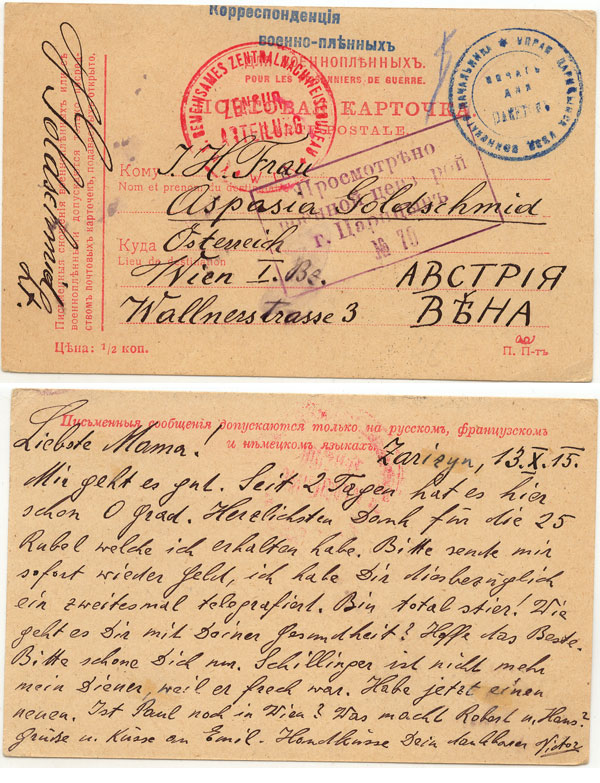 Корреспонденція
военно-плѣнныхъ
военноплѣнныхъ.
POUR LES PRISONNIERS DE GUERRE.
КАРТОЧКА
POSTALE.
GEMEINSAMES ZENTRALNACHWEISEBUREAU
ZENSUR
ABTEILUNG
ПЕЧАТЬ
ДЛЯ
ПАКЕТОВЪ
Goldschmid
Lt.
Письменныя сношенія военноплѣнныхъ или съ
военноплѣнными допускаются только посред-
ствомъ почтовыхъ карточекъ, подаваемыхъ открыто.
Просмотрѣно
военной цензурой
г. Царицынъ
№ 70
Кому I. H. Frau
Nom et prénom du destinataire
Aspasia Goldschmid
Куда Österreich
Lieu de destination
Wien I. Bz. АВСТРІЯ
Wallnerstrasse 3 ВѢНА
Цѣна: 1/2 коп.
П. П-тъ
Письменныя сообщенія допускаются только на русскомъ, французскомъ
и нѣмецкомъ языкахъ.
Liebste Mama! Zarizyn, 13.X.15.
Mir geht es gut. Seit 2 Tagen hat es hier
schon 0 grad. Herzlichsten Dank für die 25
Rubel welche ich erhalten habe. Bitte sende mir
sofort wieder Geld, ich habe Dir diesbezüglich
ein zweitesmal telegrafiert. Bin total stier! Wie
geht es Dir mit Deiner Gesundheit? Hoffe das Beste.
Bitte schone Dich nur. Schillinger ist nicht mehr
mein Diener, weil er frech war. Habe jetzt einen
neuen. Ist Paul noch in Wien? Was macht Robert u. Hans?
Grüße u. Küsse an Emil. Handküsse Dein dankbarer Victor